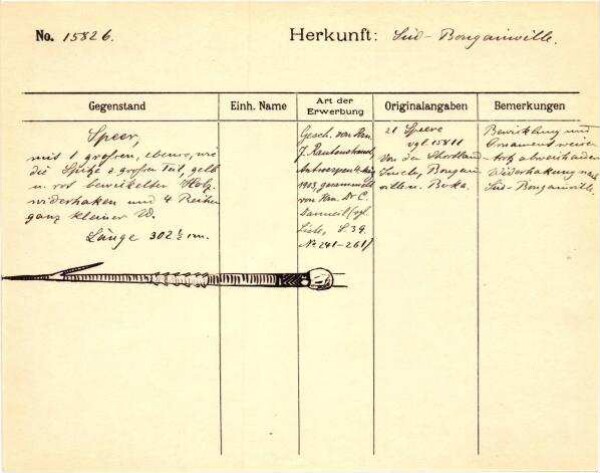 No. 15826.
Herkunft: Süd-Bougainville.
Gegenstand
Einh. Name
Art der Erwerbung
Originalangaben
Bemerkungen
Speer,
mit 1 großen, ebenso, wie
die Spitze z. großen Teil, gelb
u. rot bewickelten Holz-
widerhaken und 4 Reihen
ganz kleiner W.
Länge 302 ½ cm.
Gesch. von Hrn.
J. Rautenstrauch,
Antwerpen
1903, gesammelt
von Hrn. Dr. C.
(vgl.
Liste, S. 39
No 241-261)
21 Speere
vgl. 15811
Von den Shortland
Inseln, Bougain-
ville u. Buka.
Bewicklung und
Ornament weisen
trotz abweichender
Widerhakung nach
Süd-Bougainville.